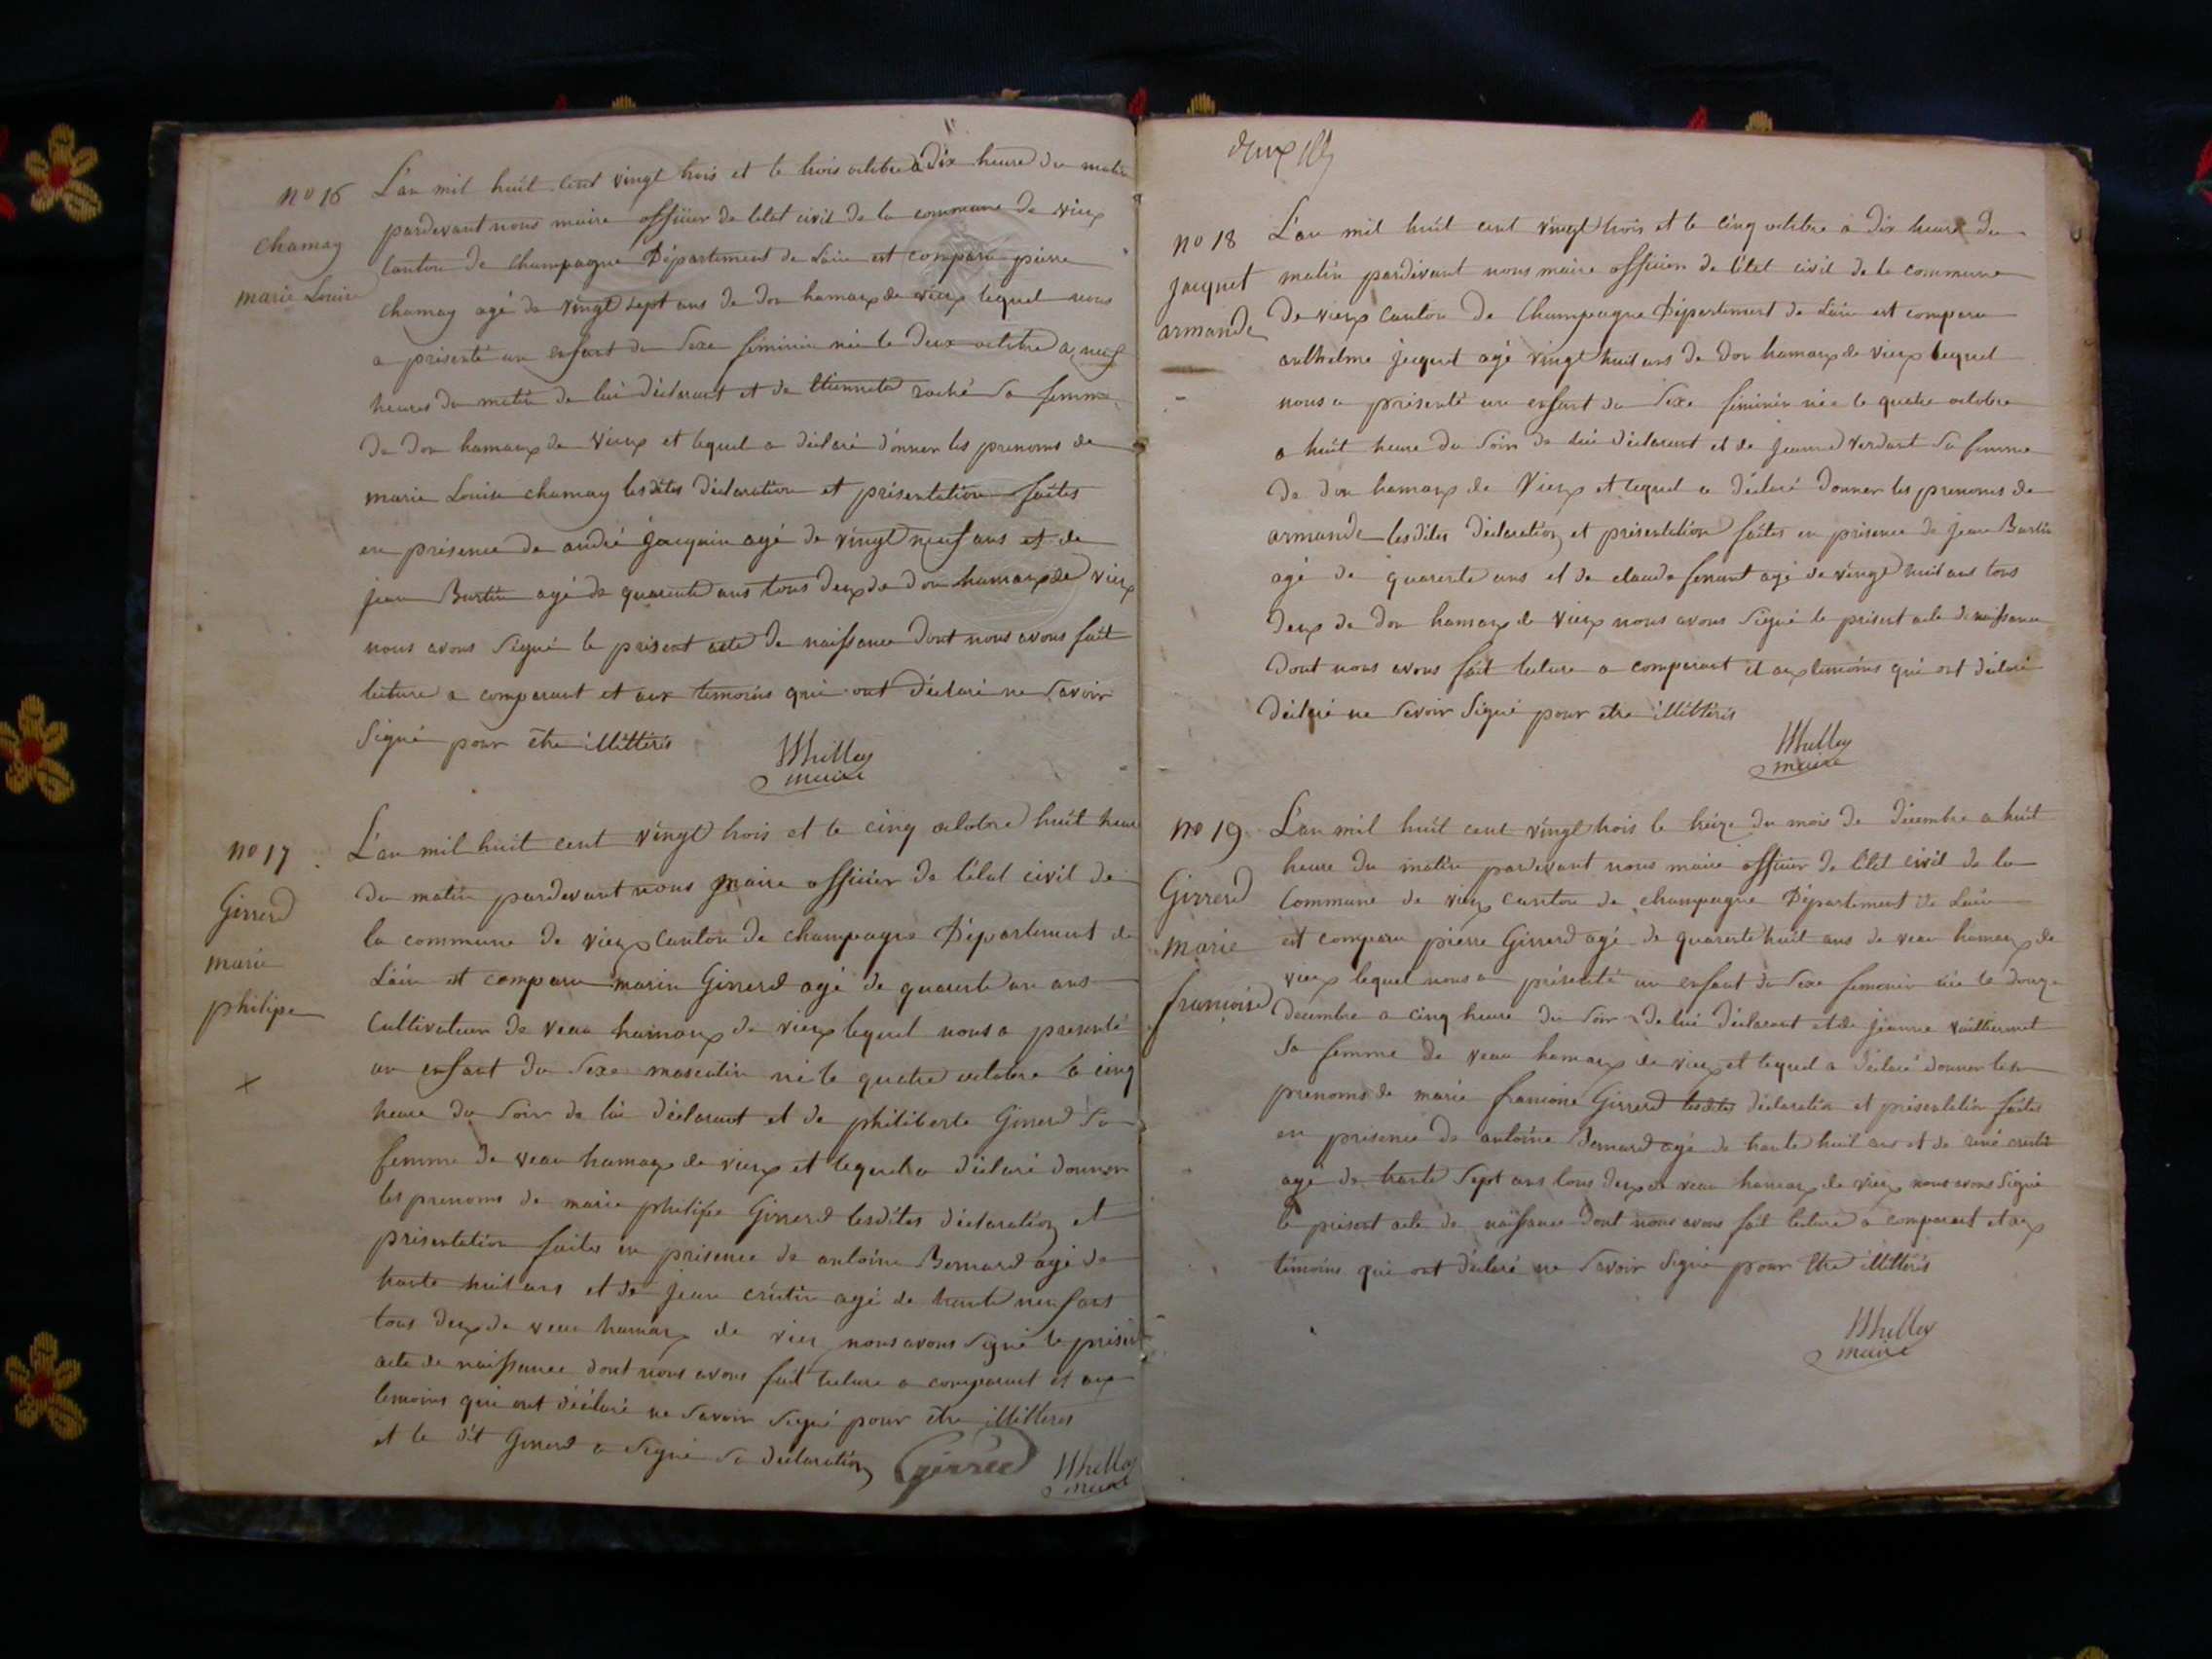 no 16
chamay
marie Louise
L'an mil huit cent vingt trois et le trois octobre a dix heure du matin
pardevant nous maire officier de letat civil de la commune de vieux
canton de champagne Département de Lain est comparu pierre
chamay agé de vingt sept ans de don hamaux de vieux lequel nous
a présenté un enfant du sexe feminin née le deux octobre a neuf
heures du matin de lui déclarant et de Etiennete roché sa femme
de don hamaux de vieux et lequel a déclaré donner les prenoms de
marie Louise chamay lesdites déclaration et présentation faites
en présence de andré jacquin agé de vingt neuf ans et de
jean Burtin agé de quarente ans tous deux de don hamaux de vieux
nous avons signé le présent acte de naissance dont nous avons fait
lecture a comparant et aux temoins qui ont déclaré ne savoir
signé pour être illittérés
maire
no 17
Girrerd
marie
philipe
L'an mil huit cent vingt trois et le cinq octobre huit heure
du matin pardevant nous maire officier de l'état civil de
la commune de vieux canton de champagne Département de
Lain est comparu marin Girrerd agé de quarente un ans
cultivateur de veau hamaux de vieux lequel nous a presenté
un enfant du sexe masculin né le quatre octobre a cinq
heure du soir de lui déclarant et de philiberte Girrerd sa
femme de veau hamaux de vieux et lequel a déclaré donner
les prenoms de marie philipe Girrerd lesdites déclaration et
présentation faites en présence de antoine Bernard agé de
trante huit ans et de jean crutin agé de trante neuf ans
tous deux de veau hamaux de vieux nous avons signé le présent
acte de naissance dont nous avons fait lecture a comparant et aux
temoins qui ont déclaré ne savoir signé pour être illitteres
et le dit Girrerd a signé sa déclaration Girrerd
maire
deux
no 18
jacquet
armande
L'an mil huit cent vingt trois et le cinq octobre a dix heure du
matin pardevant nous maire officier de l'état civil de la commune
de vieux canton de Champagne Département de Lain est comparu
anthelme jacquet agé vingt huit ans de don hamaux de vieux lequel
nous a présenté un enfant du sexe feminin née le quatre octobre
a huit heure du soir de lui déclarant et de jeanne verdant sa femme
de don hamaux de vieux et lequel a déclaré donner les prenoms de
armande lesdites déclaration et présentation faites en présence de jean Burtin
agé de quarente ans et de claude ferrant agé de vingt huit ans tous
deux de don hamaux de vieux nous avons signé le présent acte de naissance
dont nous avons fait lecture a comparant et aux temoins qui ont déclaré
déclaré ne savoir signé pour etre illittérés
maire
no 19
Girrerd
marie
francoise
L'an mil huit cent vingt trois le treize du mois de décembre a huit
heure du matin pardevant nous maire officier de l'état civil de la
commune de vieux canton de champagne Département de Lain
est comparu pierre Girrerd agé de quarente huit ans de veau hamaux de
vieux lequel nous a présenté un enfant du sexe femenin née le douze
decembre a cinq heure du soir de lui déclarant et de jeanne
sa femme de veau hamaux de vieux et lequel a déclaré donner les
prenoms de marie francoise Girrerd lesdites déclaration et présentation faites
en présence de antoine Bernard agé de trante huit ans et de rené crutin
agé de trante sept ans tous deux de veau hamaux de vieux nous avons signé
le présent acte de naissance dont nous avons fait lecture a comparant et aux
témoins qui ont déclaré ne savoir signé pour être illittérés
maire